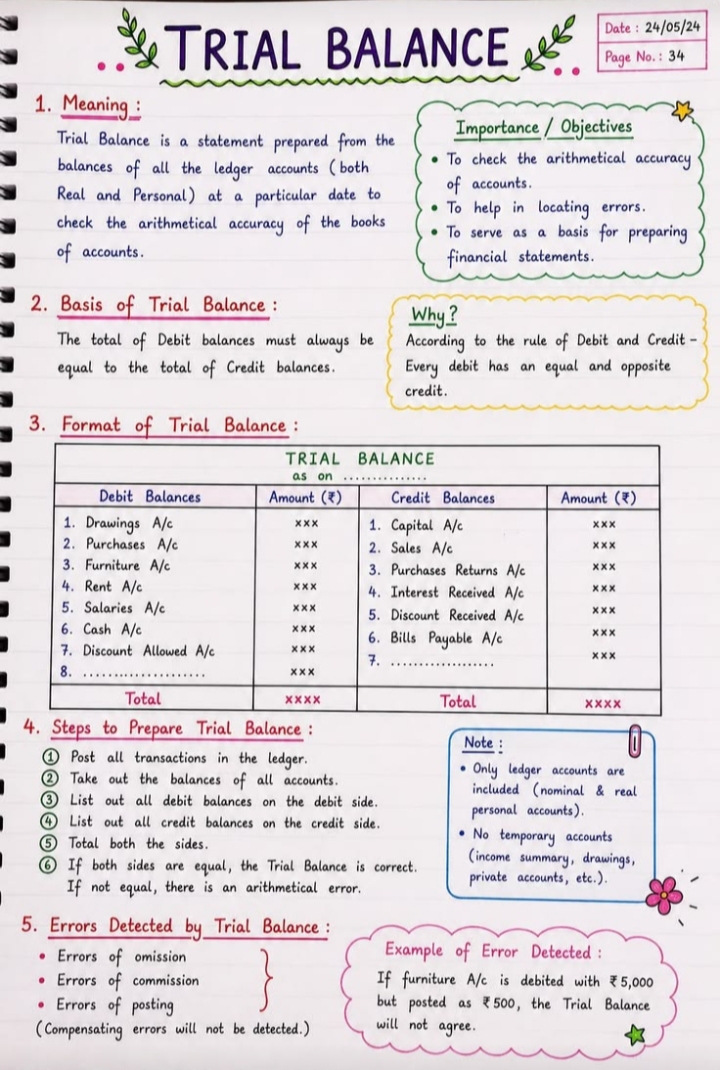 TRIAL BALANCE
Date : 24/05/24
Page No. : 34
1. Meaning :
Trial Balance is a statement prepared from the
balances of all the ledger accounts (both
Real and Personal) at a particular date to
check the arithmetical accuracy of the books
of accounts.
Importance / Objectives
• To check the arithmetical accuracy
of accounts.
• To help in locating errors.
• To serve as a basis for preparing
financial statements.
2. Basis of Trial Balance :
The total of Debit balances must always be
equal to the total of Credit balances.
Why?
According to the rule of Debit and Credit –
Every debit has an equal and opposite
credit.
3. Format of Trial Balance :
TRIAL BALANCE
as on ...............
Debit Balances Amount (₹) Credit Balances Amount (₹)
1. Drawings A/c xxx 1. Capital A/c xxx
2. Purchases A/c xxx 2. Sales A/c xxx
3. Furniture A/c xxx 3. Purchases Returns A/c xxx
4. Rent A/c xxx 4. Interest Received A/c xxx
5. Salaries A/c xxx 5. Discount Received A/c xxx
6. Cash A/c xxx 6. Bills Payable A/c xxx
7. Discount Allowed A/c xxx 7. ................... xxx
8. ...................... xxx
Total xxxx Total xxxx
4. Steps to Prepare Trial Balance :
① Post all transactions in the ledger.
② Take out the balances of all accounts.
③ List out all debit balances on the debit side.
④ List out all credit balances on the credit side.
⑤ Total both the sides.
⑥ If both sides are equal, the Trial Balance is correct.
If not equal, there is an arithmetical error.
Note :
• Only ledger accounts are
included (nominal & real
personal accounts).
• No temporary accounts
(income summary, drawings,
private accounts, etc.).
5. Errors Detected by Trial Balance :
• Errors of omission
• Errors of commission
• Errors of posting
(Compensating errors will not be detected.)
Example of Error Detected :
If furniture A/c is debited with ₹ 5,000
but posted as ₹ 500, the Trial Balance
will not agree.